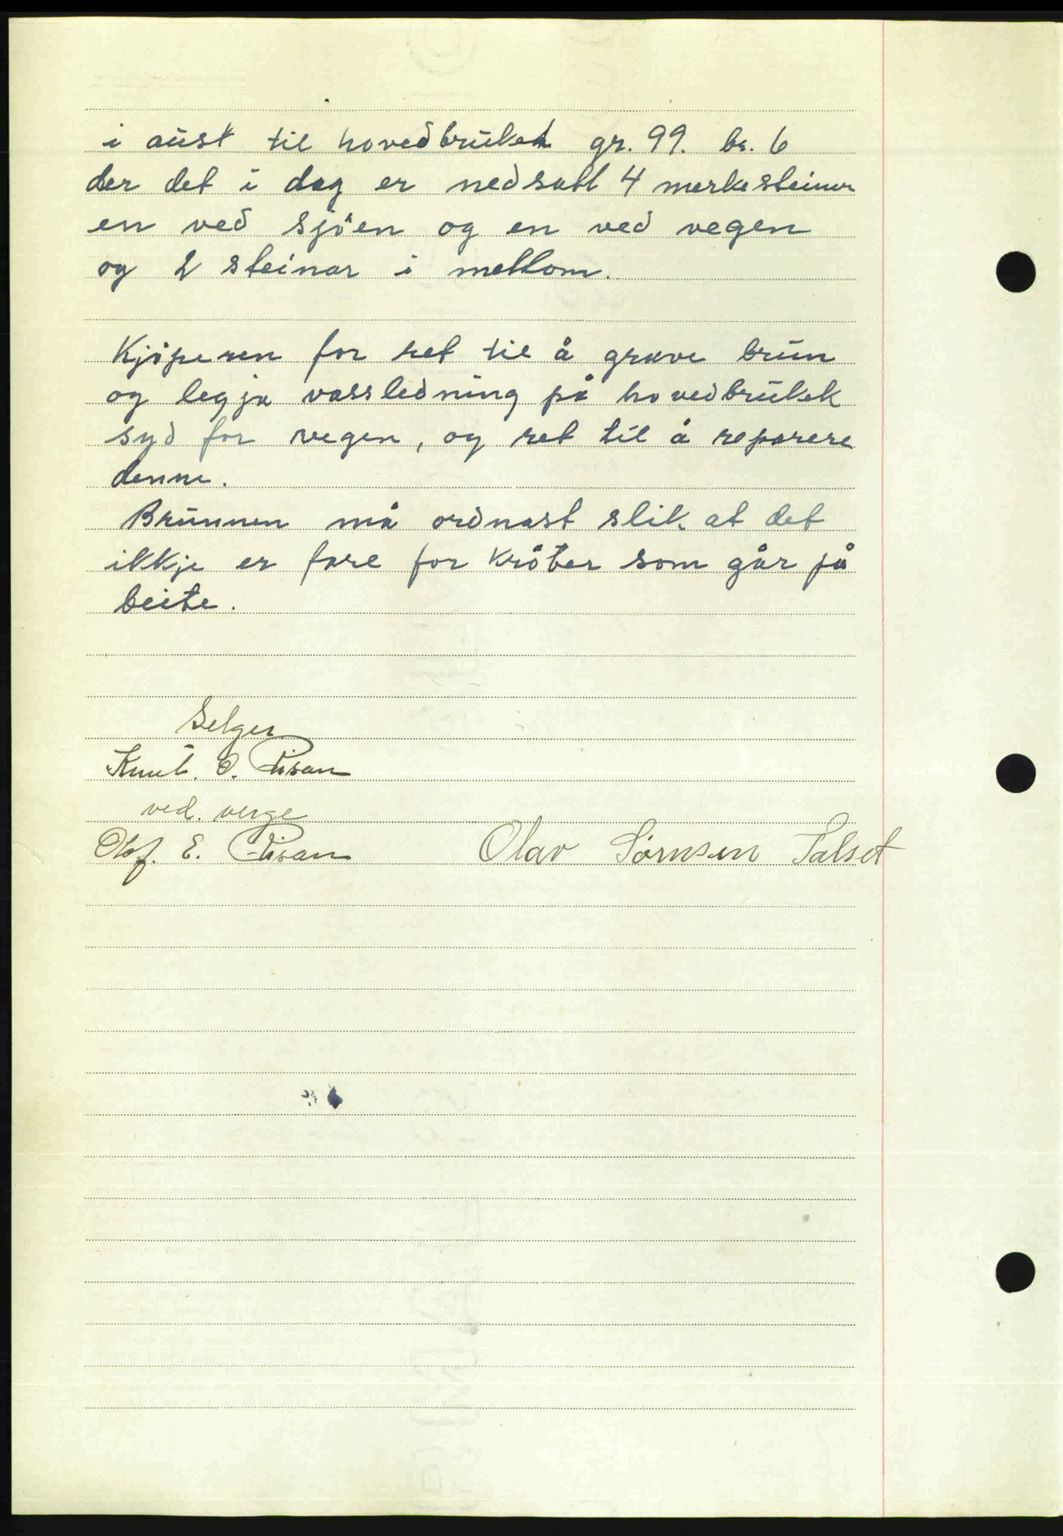 i aust til hovedbruket gr. 99. br. 6
der det i dag er nedsatt 4 merkesteiner
en ved sjöen og en ved vegen
og 2 steinar i mellom.
Kjöperen for ret til å grave brun
og legja vassledning på hovedbruket
syd for vegen, og ret til å reparere
denne.
Brunnen må ordnast slik at det
ikkje er fare for kröter som går på
beite.
Selger
Knut. O.
ved. verge
Olaf. E.
Olav Sörnsen Talset